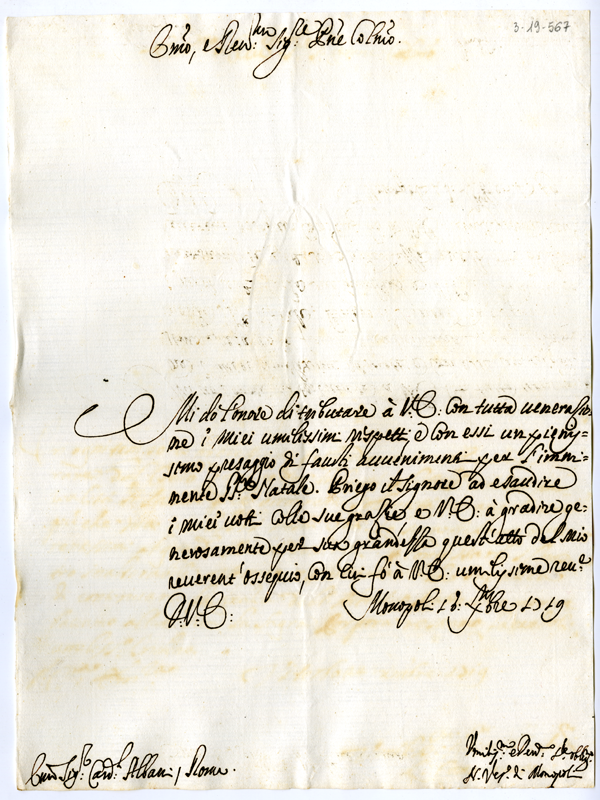 3-19-567
Em̃o, e Reu:mo Sig:re Pñe Colm̃o.
Mi dò l'onore di tributare à V: E: con tutta venerazio
ne i miei umilissimi rispetti, e con essi un pienis=
simo presaggio di fausti auuenimenti per l'immi=
nente SS:mo Natale. Priego il Signore ad esaudire
i miei uoti colle sue grazie e V: E: à gradire ge=
nerosamente per sua grandezza quest'atto del mio
reuerent'ossequio, con cui fò à V: E: umilissime reu:e
D. V: E:
Monopoli 16: Xbre 1719
Em̃o Sig:r Card:l Albani / Roma.
Umiliss:o e Deu:o
N. Ves:o di Monopoli